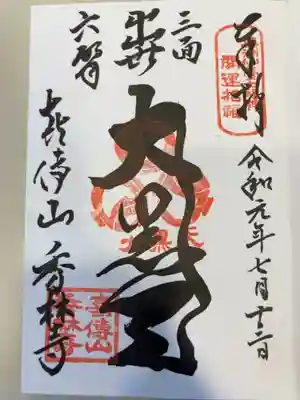 奉拝
開運招福
令和元年七月十二日
三面
六臂
出世
大黒天
喜傳山 香林寺
喜傳山
香林寺